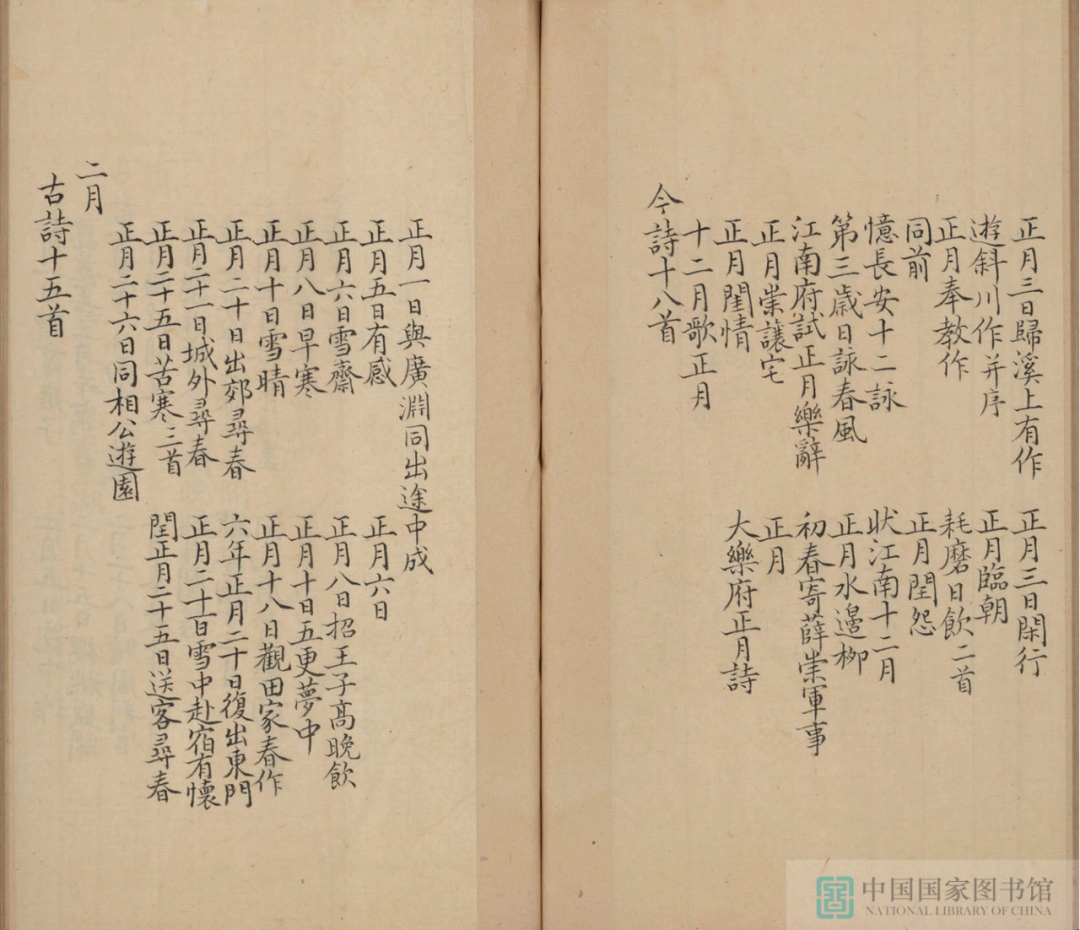 正月三日歸溪上有作　正月三日閑行
遊斜川作并序　正月臨朝
正月奉教作　耗磨日飲二首
同前　正月閨怨
憶長安十二詠　狀江南十二月
第三歲日詠春風　正月水邊柳
江南府試正月樂辭　初春寄薛崇軍事
正月崇讓宅　正月
正月閨情　大樂府正月詩
十二月歌正月
今詩十八首
正月一日與廣淵同出途中成
正月五日有感　正月六日
正月六日雪齋　正月八日招王子高晚飲
正月八日早寒　正月十日五更夢中
正月十日雪晴　正月十八日觀田家春作
正月二十日出郊尋春　六年正月二十日復出東門
正月二十一日城外尋春　正月二十一日雪中赴宿有懷
正月二十五日苦寒三首　閏正月二十五日送客尋春
正月二十六日同相公遊園
二月
古詩十五首
中国国家图书馆
NATIONAL LIBRARY OF CHINA